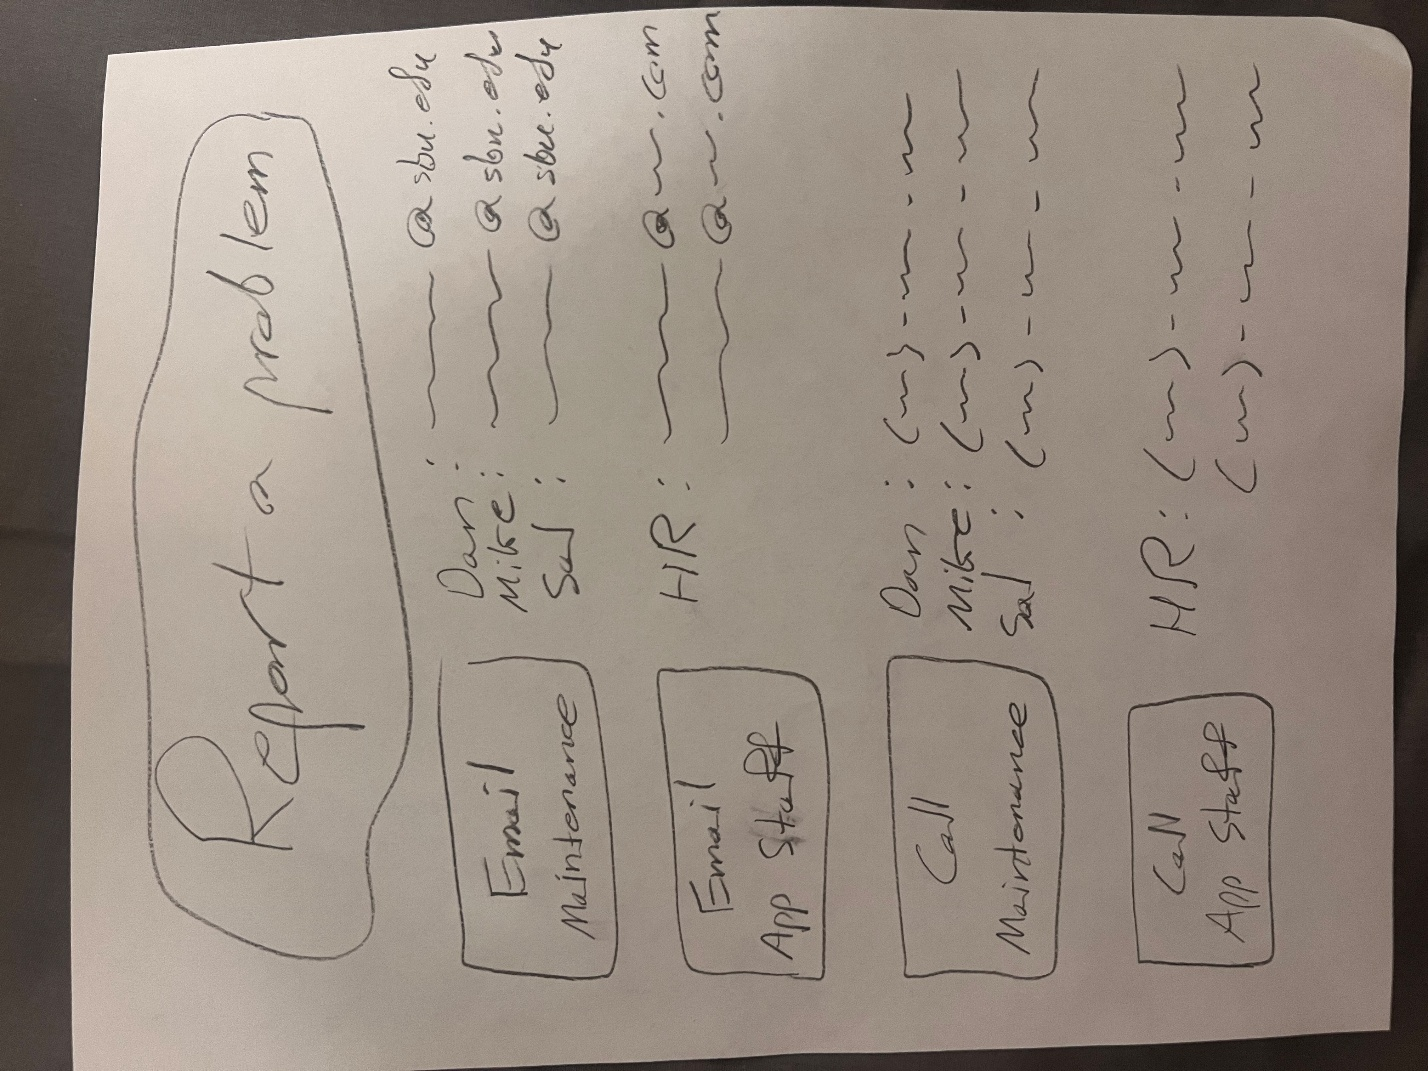 Report a problem
Email
Maintenance
Dan: @sbu.edu
Mike: @sbu.edu
Sal: @sbu.edu
Email
App Staff
HR: @ .com
@ .com
Call
Maintenance
Dan: ( ) - -
Mike: ( ) - -
Sal: ( ) - -
Call
App Staff
HR: ( ) - -
( ) - -